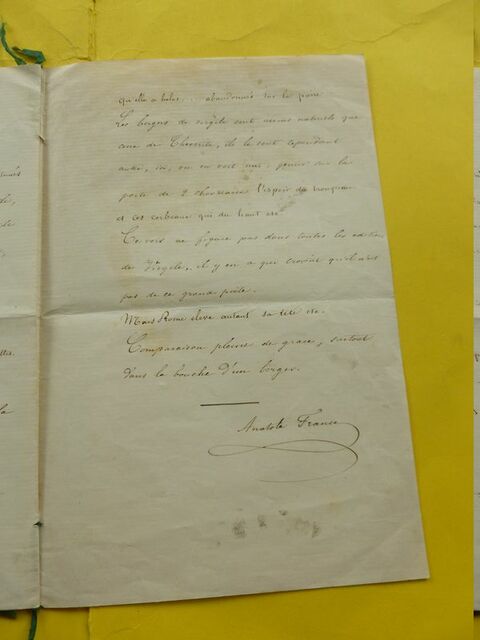 qu'elle a hélas ... abandonnés sur la pierre
Les bergers de Virgile sont moins naturels que
ceux de Théocrite, ils le sont cependant
autre, ici, on en voit un, pleurer sur la
perte de 2 chevreaux l'espoir du troupeau
et ces corbeaux qui du haut etc
Ce vers ne figure pas dans toutes les editions
de Virgile, il y en a qui croient qu'il n'est
pas de ce grand poète.
Mais Rome élève autant sa tête etc.
Comparaison pleines de graces, surtout
dans la bouche d'un berger.
Anatole France